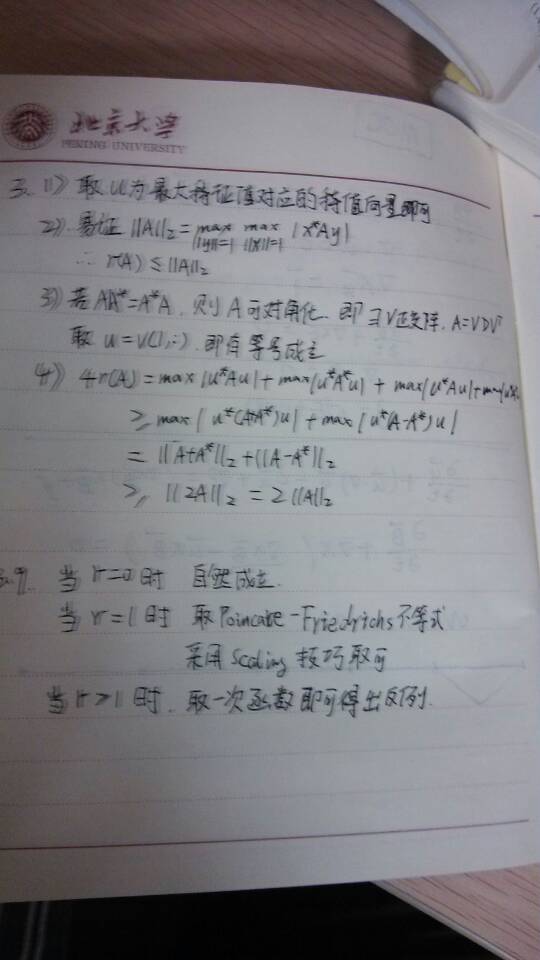 北京大学
PEKING UNIVERSITY
3. 1) 取 u 为最大特征值对应的特征向量即可
2) 易证 ||A||₂ = max_{||y||=1} max_{||x||=1} |x*Ay|
∴ r(A) ≤ ||A||₂
3) 若 AA* = A*A, 则 A 可对角化. 即 ∃ V 正交阵, A = VDVᵀ
取 u = V(1,:). 即有等号成立
4) 4r(A) = max|u*Au| + max|u*A*u| + max|u*Au| + max|u*
≥ max|u*(A+A*)u| + max|u*(A-A*)u|
= ||A+A*||₂ + ||A-A*||₂
≥ ||2A||₂ = 2||A||₂
9. 当 r=0 时 自然成立.
当 r=1 时 取 Poincare-Friedrichs 不等式
采用 scaling 技巧取可
当 r>1 时. 取一次函数即可得出反例.